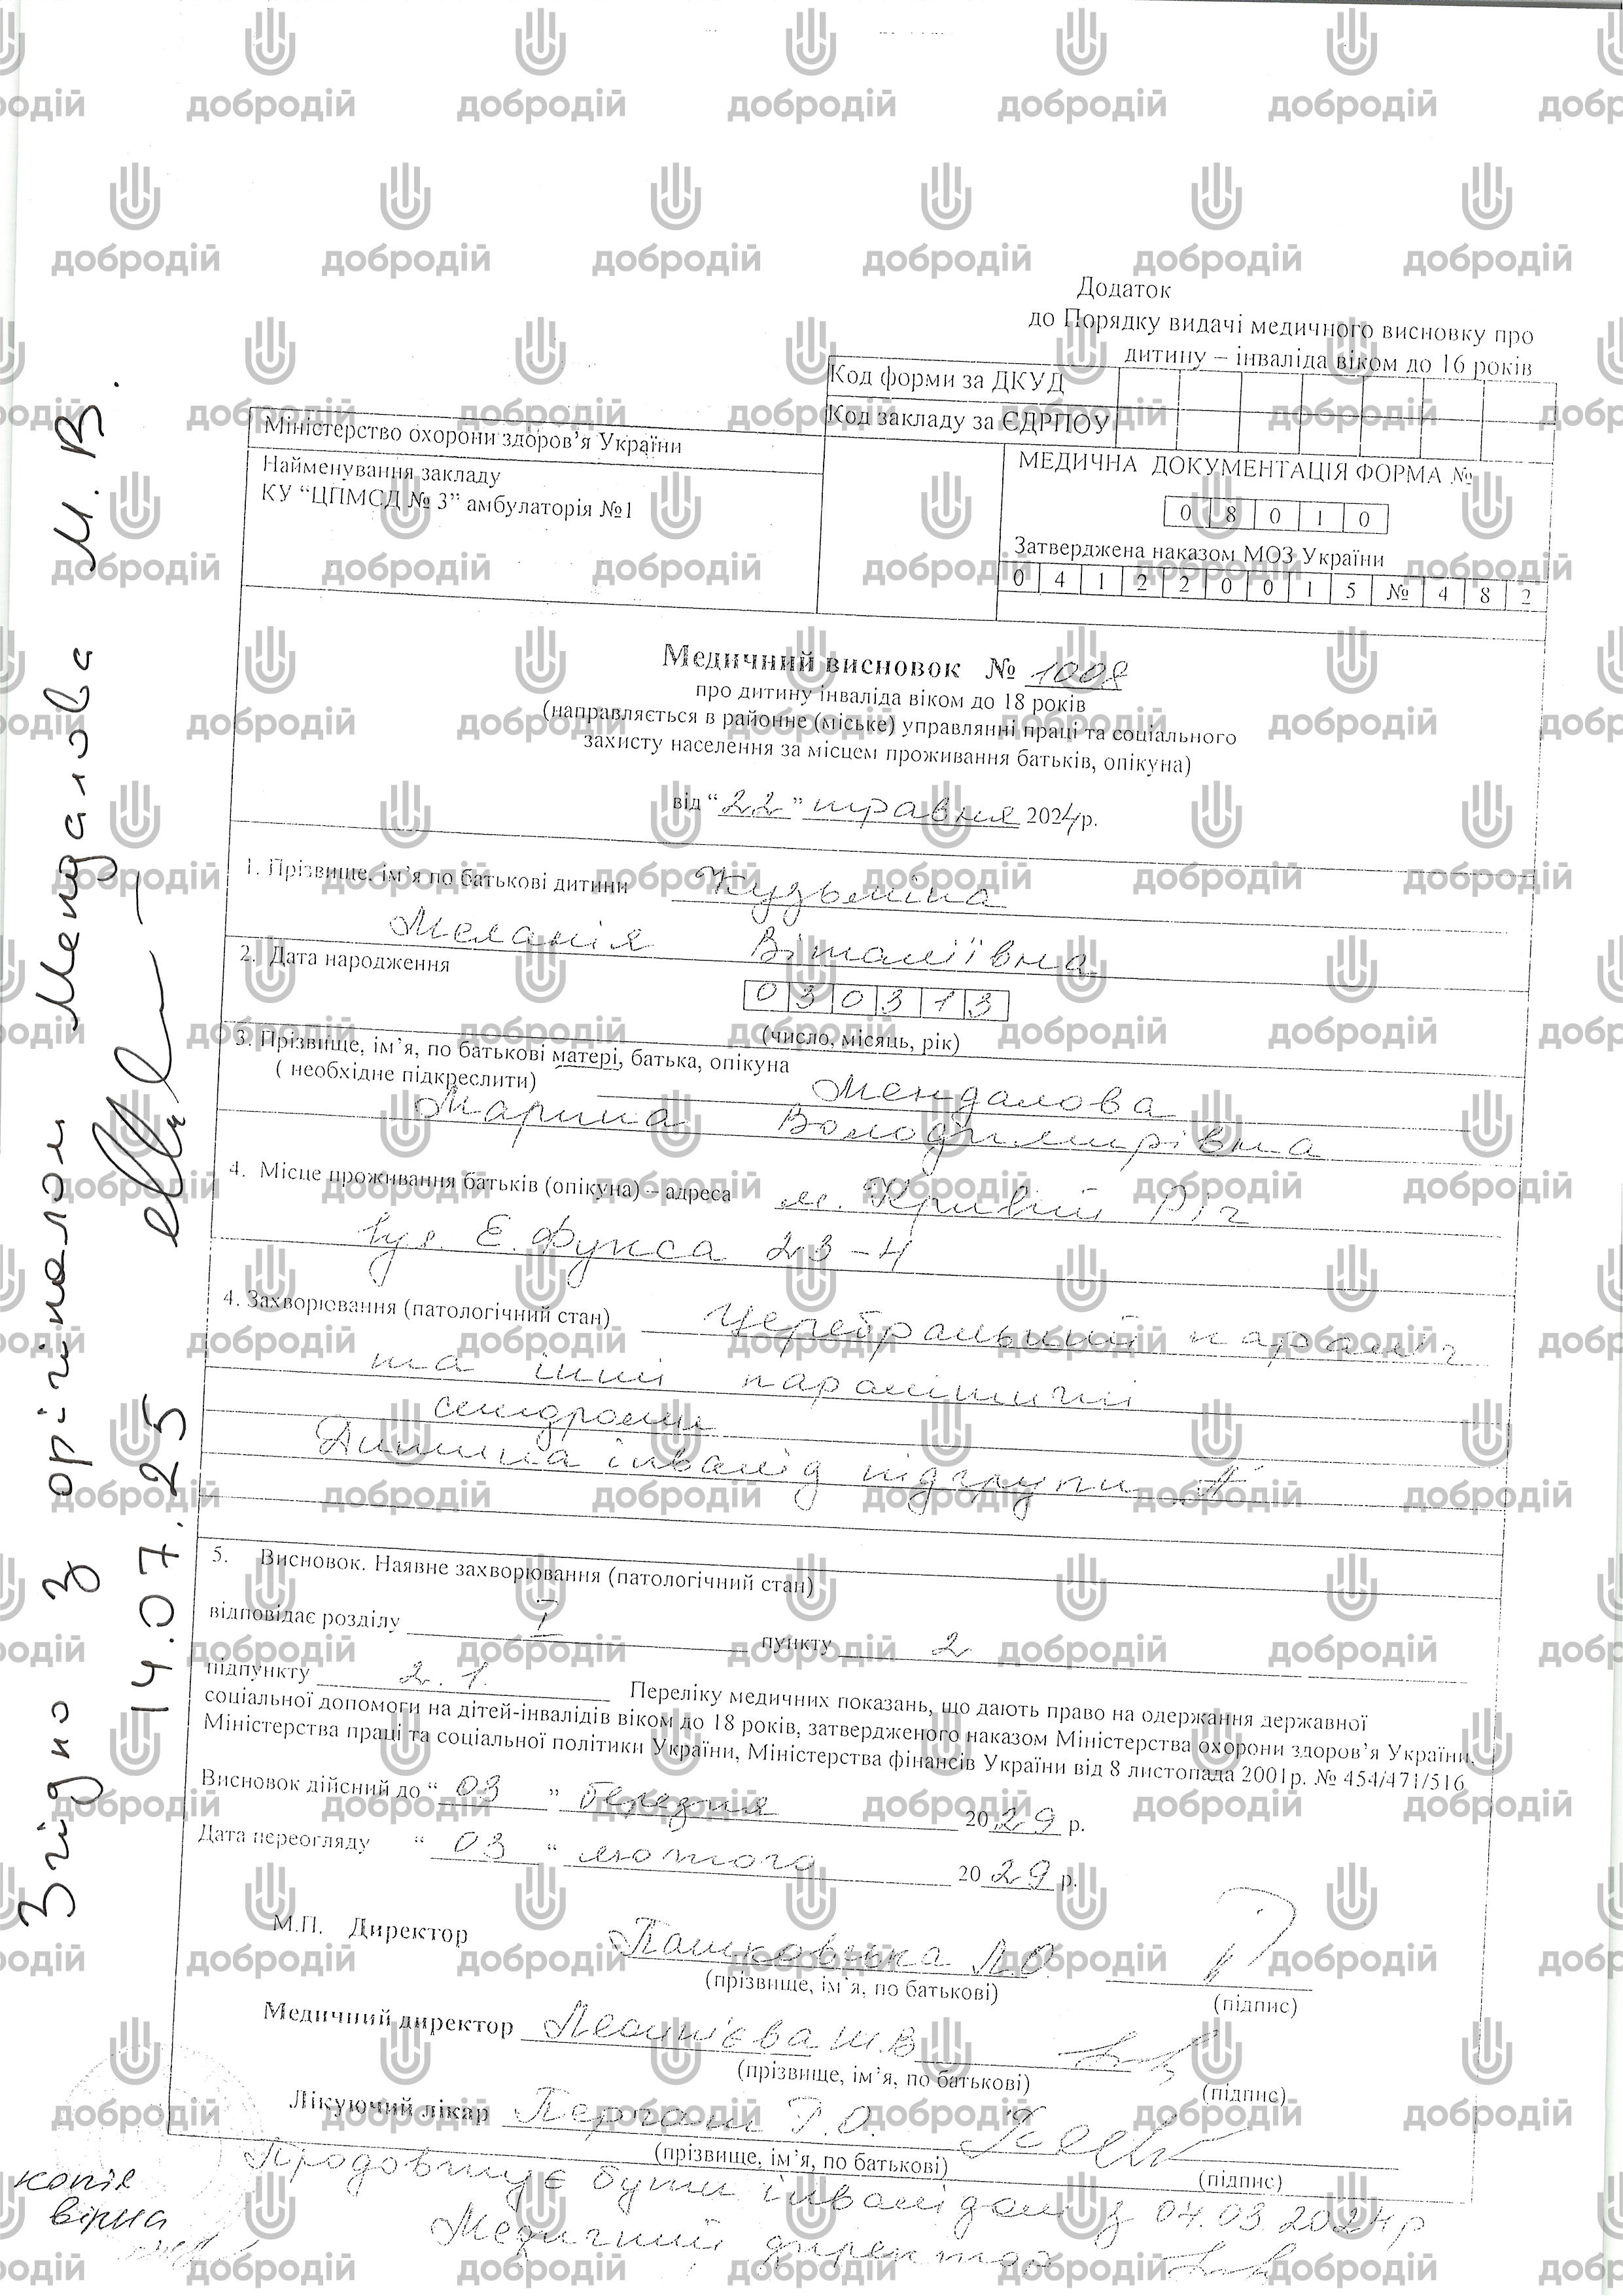 Додаток
до Порядку видачі медичного висновку про
дитину – інваліда віком до 16 років
Код форми за ДКУД
Код закладу за ЄДРПОУ
Міністерство охорони здоров’я України
Найменування закладу
КУ “ЦПМСД № 3” амбулаторія №1
МЕДИЧНА ДОКУМЕНТАЦІЯ ФОРМА №
0 8 0 1 0
Затверджена наказом МОЗ України
0 4 1 2 2 0 0 1 5 № 4 8 2
Медичний висновок № 1008
про дитину інваліда віком до 18 років
(направляється в районне (міське) управлянні праці та соціального
захисту населення за місцем проживання батьків, опікуна)
від “22” травня 2024р.
1. Прізвище, ім’я по батькові дитини Кузьміна
Меланія Віталіївна
2. Дата народження
0 3 0 3 1 3
(число, місяць, рік)
3. Прізвище, ім’я, по батькові матері, батька, опікуна
( необхідне підкреслити) Мендалова
Марина Володимирівна
4. Місце проживання батьків (опікуна) – адреса м. Кривий Ріг
вул. Е. Фукса 23-4
4. Захворювання (патологічний стан) Церебральний параліч
та інші паралітичні
синдроми
Дитина інвалід підгрупи А
5. Висновок. Наявне захворювання (патологічний стан)
відповідає розділу I пункту 2
підпункту 2.1. Переліку медичних показань, що дають право на одержання державної
соціальної допомоги на дітей-інвалідів віком до 18 років, затвердженого наказом Міністерства охорони здоров’я України,
Міністерства праці та соціальної політики України, Міністерства фінансів України від 8 листопада 2001р. № 454/471/516
Висновок дійсний до “ 03 ” березня 2029 р.
Дата переогляду “ 03 “ лютого 2029 р.
М.П. Директор Пашковська Л.О.
(прізвище, ім’я, по батькові)
(підпис)
Медичний директор В
(прізвище, ім’я, по батькові)
(підпис)
Лікуючий лікар
(прізвище, ім’я, по батькові)
(підпис)
Продовжує бути інвалідом з 04.03.2024р
Медичний директор
копія
вірна
Згідно з орігіналом Мендалова М.В.
14.07.25
добродій